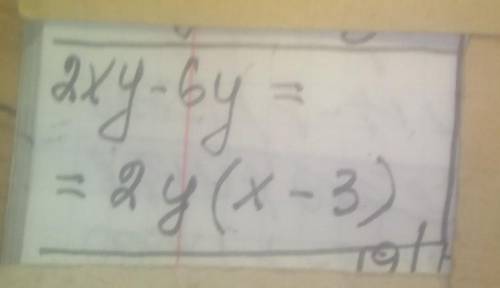 2xy - 6y =
= 2y(x - 3)